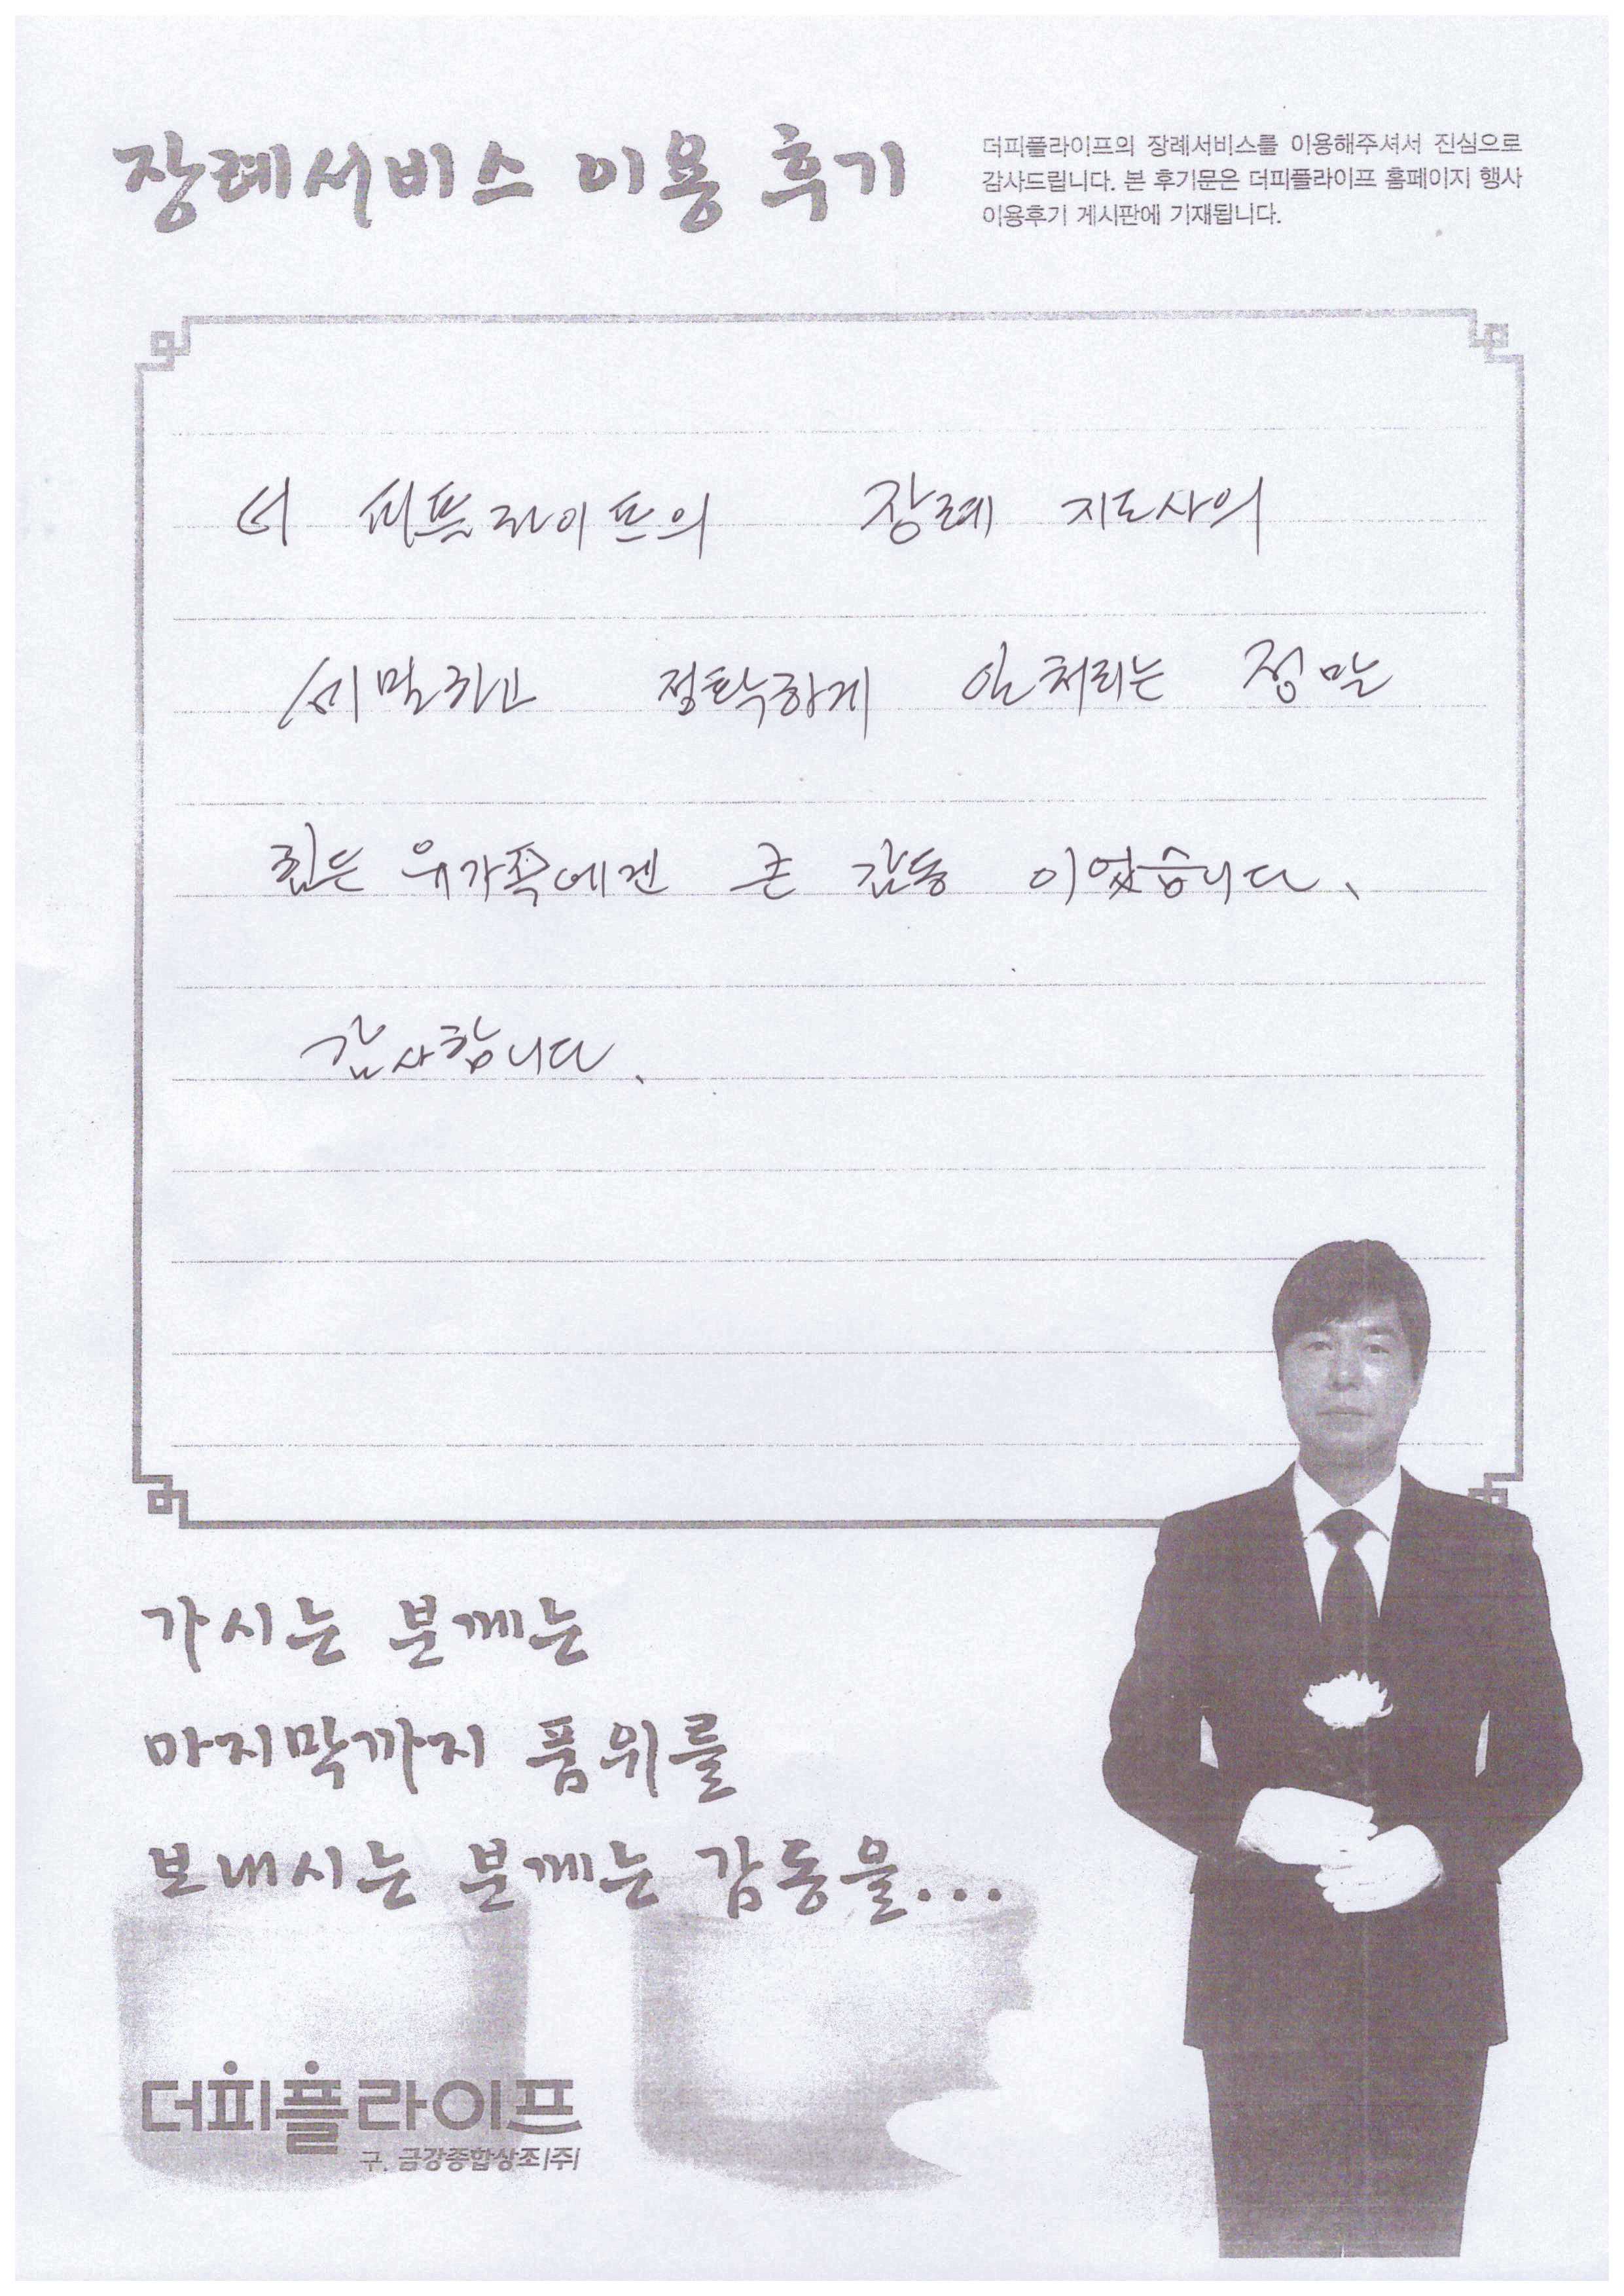 장례서비스 이용 후기
더피플라이프의 장례서비스를 이용해주셔서 진심으로
감사드립니다. 본 후기문은 더피플라이프 홈페이지 행사
이용후기 게시판에 기재됩니다.
더 피플라이프의 장례 지도사의
세밀하고 정확하게 일처리는 정말
힘든 유가족에겐 큰 감동 이었습니다.
감사합니다.
가시는 분께는
마지막까지 품위를
보내시는 분께는 감동을...
더피플라이프
구. 금강종합상조(주)